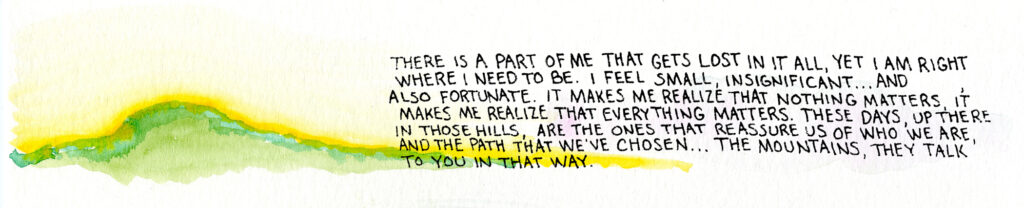 THERE IS A PART OF ME THAT GETS LOST IN IT ALL, YET I AM RIGHT
WHERE I NEED TO BE. I FEEL SMALL, INSIGNIFICANT... AND
ALSO FORTUNATE. IT MAKES ME REALIZE THAT NOTHING MATTERS, IT
MAKES ME REALIZE THAT EVERYTHING MATTERS. THESE DAYS, UP THERE
IN THOSE HILLS, ARE THE ONES THAT REASSURE US OF WHO WE ARE,
AND THE PATH THAT WE'VE CHOSEN... THE MOUNTAINS, THEY TALK
TO YOU IN THAT WAY.